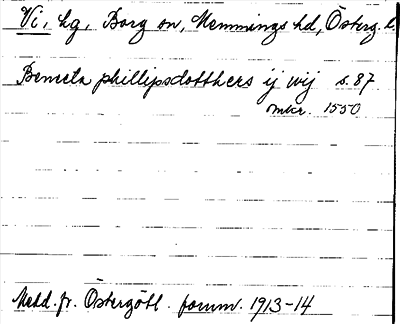 Vi, hg, Borg sn, Memmings hd, Österg. l.
Bemeta phillipsdotthers ij wij s. 87
mbr. 1550
Medd. fr. Östergötl. fornm. 1913-14